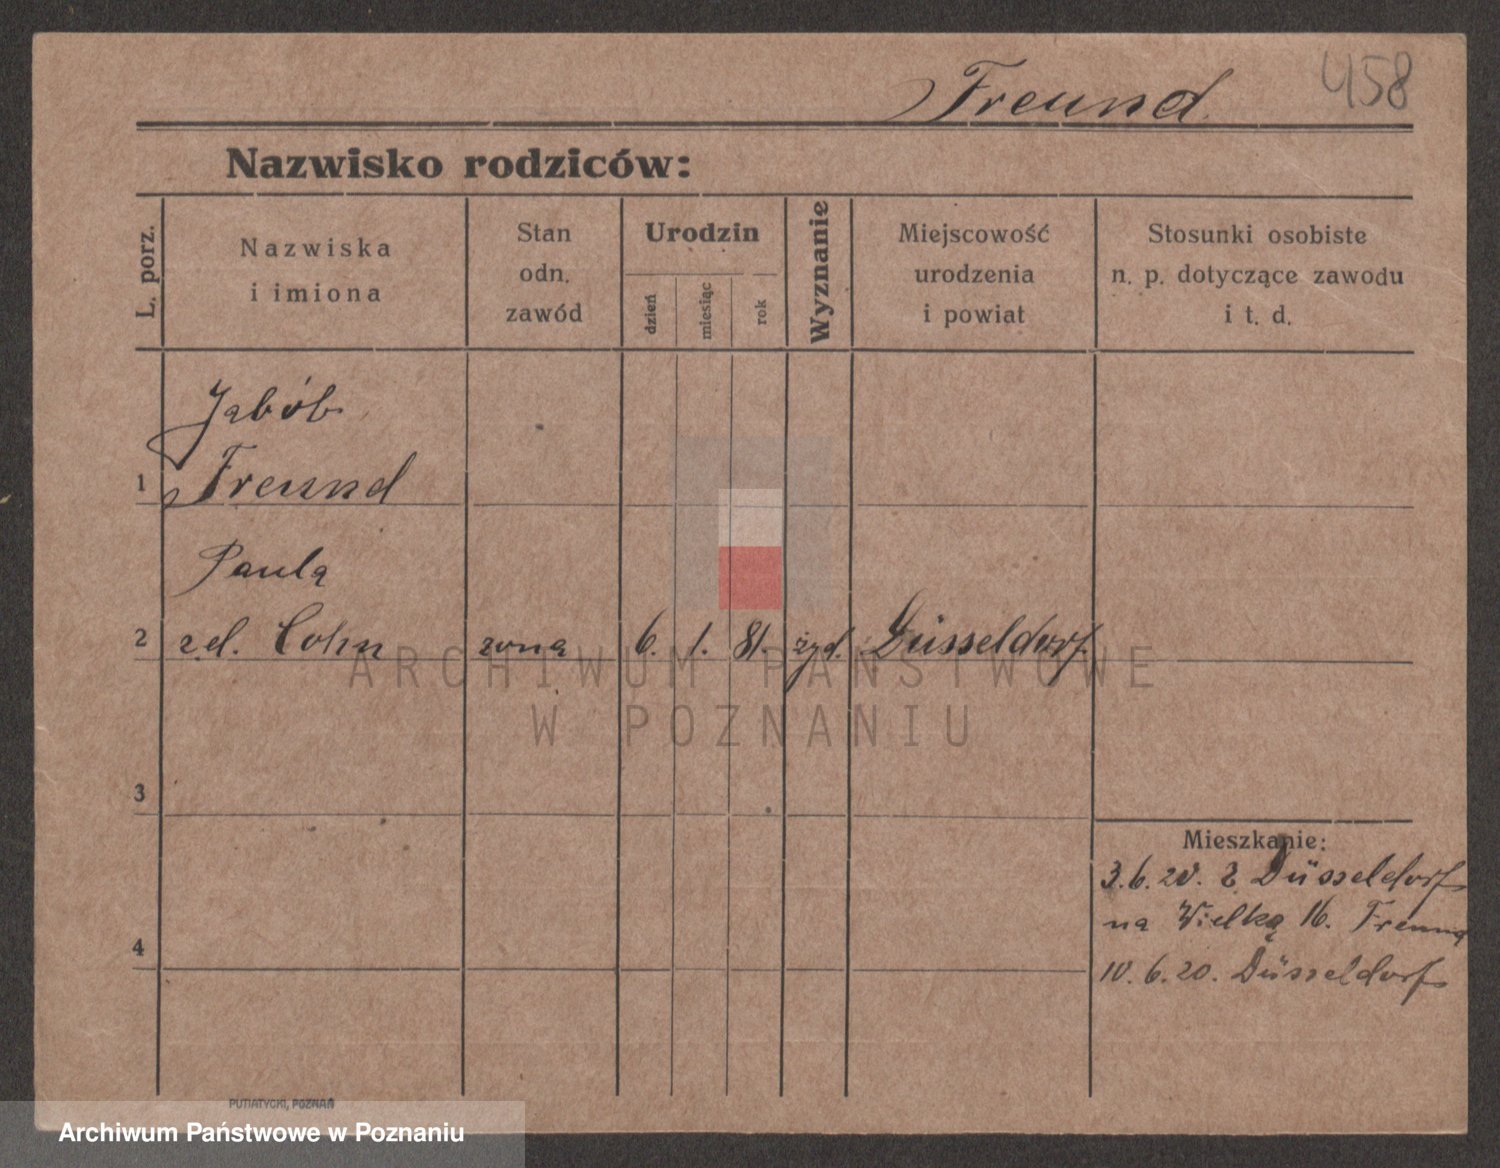 458
Freund.
Nazwisko rodziców:
L. porz.
Nazwiska
i imiona
Stan
odn.
zawód
Urodzin
dzień
miesiąc
rok
Wyznanie
Miejscowość
urodzenia
i powiat
Stosunki osobiste
n. p. dotyczące zawodu
i t. d.
Jakób
1 Freund
Paula
2 z d. Cohn żona 6. 1. 81. żyd. Düsseldorf.
3
4
Mieszkanie:
3.6.20. z Düsseldorf
na Wielką 16. Freund
10.6.20. Düsseldorf
PUTIATYCKI, POZNAŃ
ARCHIWUM PAŃSTWOWE
W POZNANIU
Archiwum Państwowe w Poznaniu